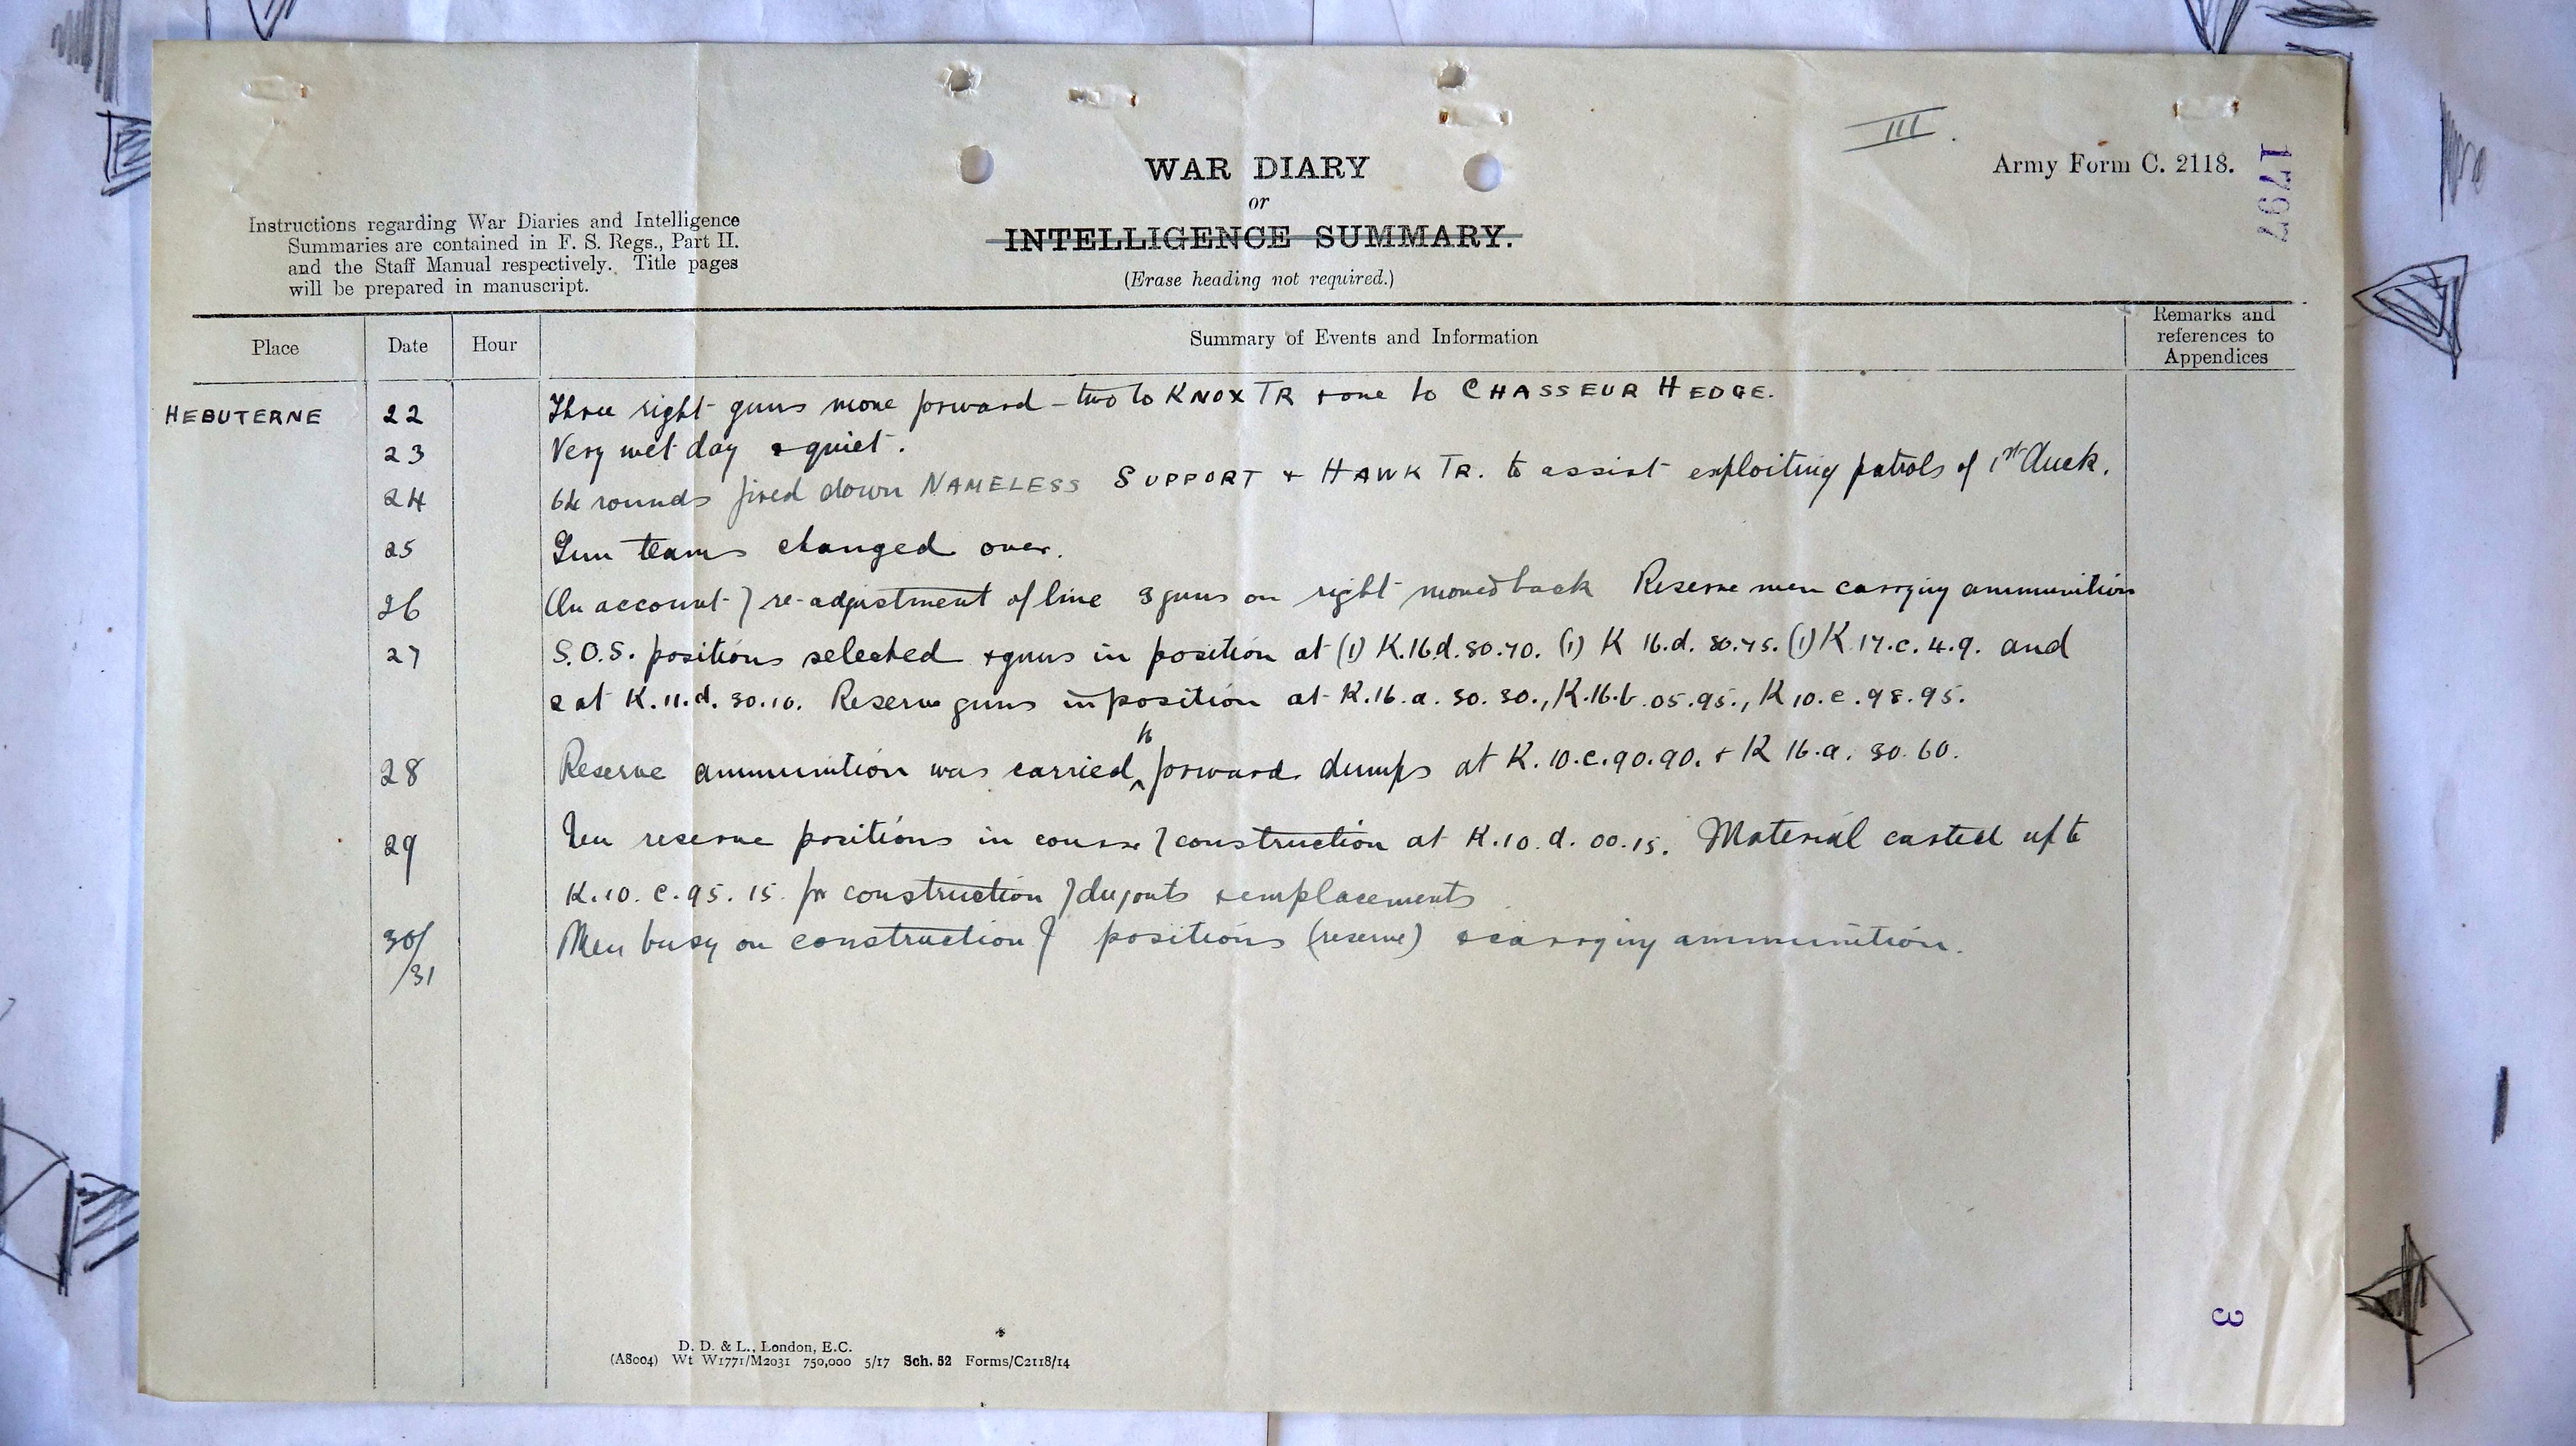 III.
Army Form C. 2118.
17797
WAR DIARY
or
INTELLIGENCE SUMMARY.
(Erase heading not required.)
Instructions regarding War Diaries and Intelligence
Summaries are contained in F. S. Regs., Part II.
and the Staff Manual respectively. Title pages
will be prepared in manuscript.
Place Date Hour Summary of Events and Information Remarks and
references to
Appendices
HEBUTERNE 22 Three right guns move forward - two to KNOX TR + one to CHASSEUR HEDGE.
23 Very wet day & quiet.
24 64 rounds fired down NAMELESS SUPPORT + HAWK TR. to assist exploiting patrols of 1st Auck.
25 Gun teams changed over.
26 On account of re-adjustment of line 3 guns on right moved back Reserve men carrying ammunition
27 S.O.S. positions selected + guns in position at (1) K.16.d.80.70. (1) K 16.d. 80.75. (1) K.17.c.4.9. and
2 at K.11.d.30.10. Reserve guns in position at K.16.a.30.30., K.16.b.05.95., K 10.c.98.95.
28 Reserve ammunition was carried to forward dumps at K.10.c.90.90. + K 16.a.30.60.
29 New reserve positions in course of construction at K.10.d.00.15. Material carted up to
K.10.c.95.15 for construction of dugouts + emplacements
30/31 Men busy on construction of positions (reserve) & carrying ammunition.
3
D. D. & L., London, E.C.
(A8004) Wt W1771/M2031 750,000 5/17 Sch. 52 Forms/C2118/14